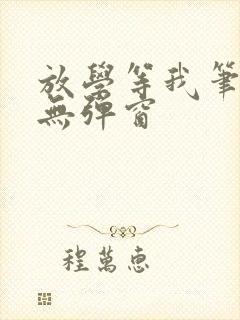 放學等我筆
無彈窗
程萬惠